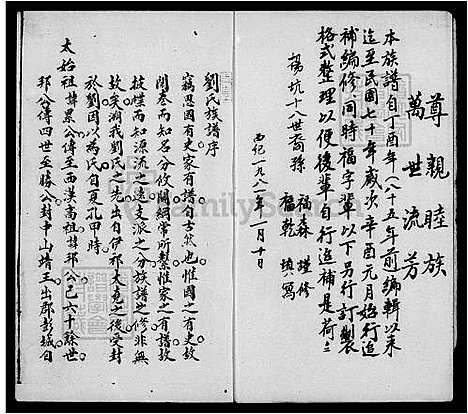 尊親睦族
萬世流芳
本族譜自丁酉年(八十五年前)編輯以來
迄至民國七十年歲次辛酉元月始行追
補編修同時福字輩以下另行訂製
格式整理以便後輩自行追補是荷
楊坑十八世裔孫
福森 謹修
福乾 填寫
西紀一九八一年一月十日
劉氏族譜序
竊思國有史家有譜自古然也惟國之有史故
開卷而知名分攸關綱常所繫惟家之有譜故
披牒而知源流之遠支派之分族譜之修非無
故矣溯我劉氏之先出自伊祁大堯之後受封
於劉因以為氏自夏孔甲時
太始祖諱累公傳至西漢高祖諱邦公已六十餘世
邦公傳四世至勝公封中山靖王出郡彭城自
FamilySearch